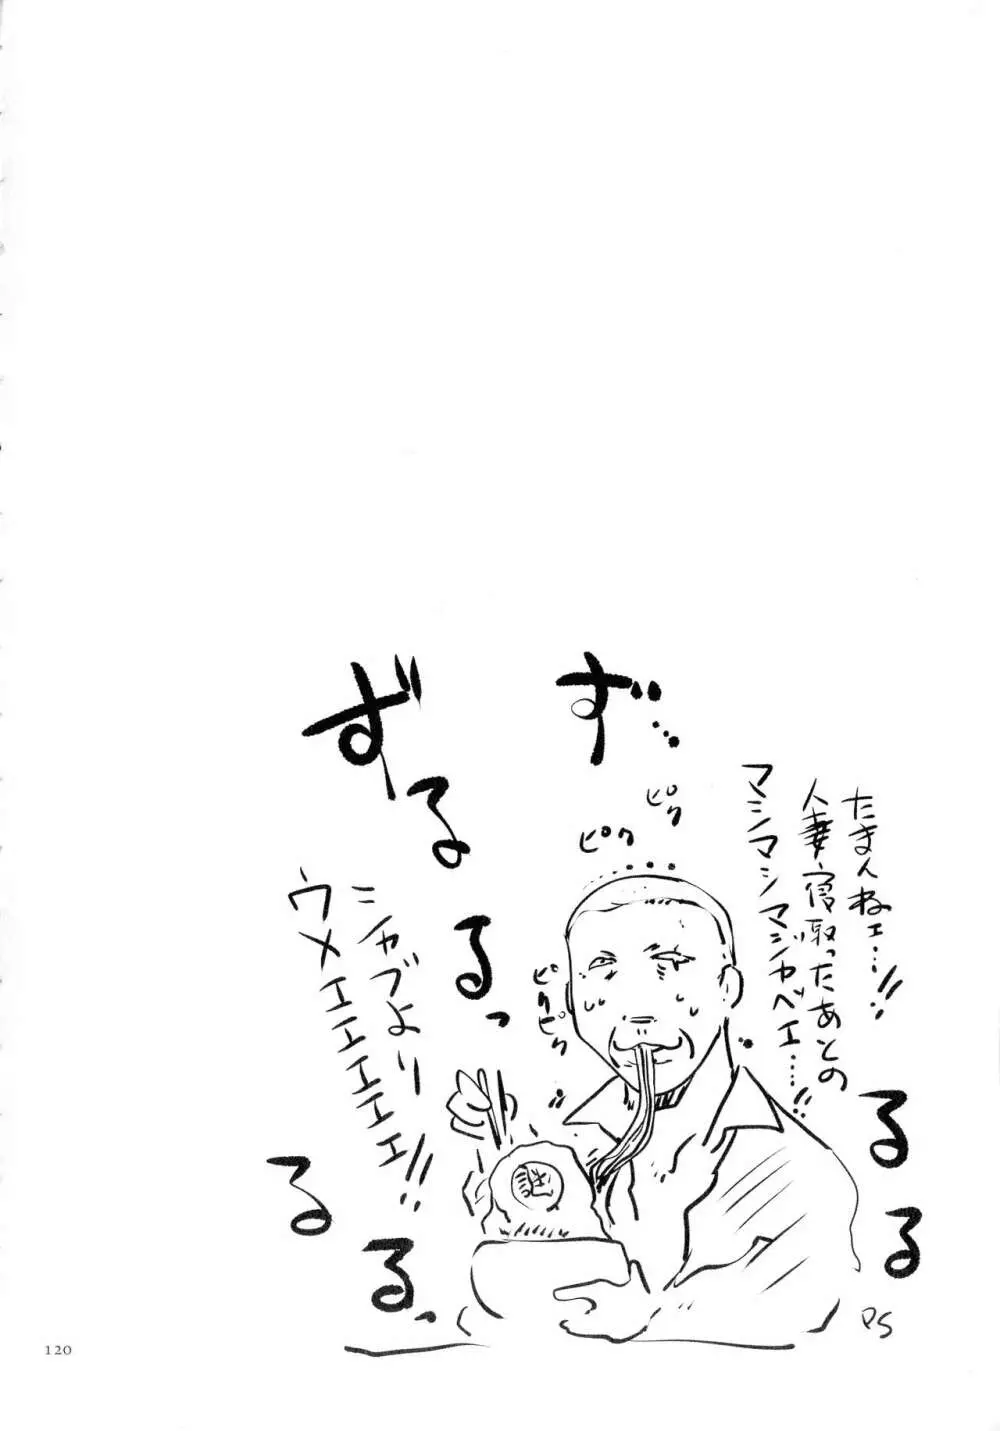 たまんねェ…!!
人妻寝取ったあとの
マシマシマジヤベエ…!!
ず
るる
ピク
ピク
ピクピク
ずるるっ
シャブより
ウメエエエエエェ!!
謎
るるっ
PS
120